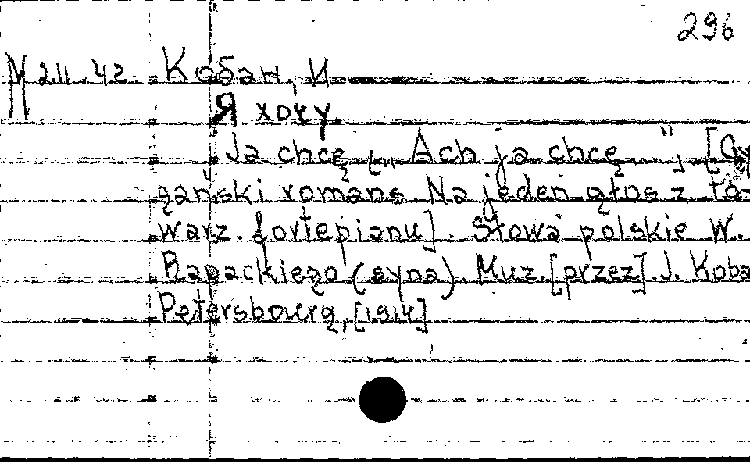 296
M 211.42 Кобан, И
Я хочу
Ja chcę („Ach ja chcę"), [Cy
gański romans. Na jeden głos z to-
warz. fortepianu]. Słowa polskie W.
Rapackiego (syna). Muz. [przez] J. Koba
Petersbourg, [1914]